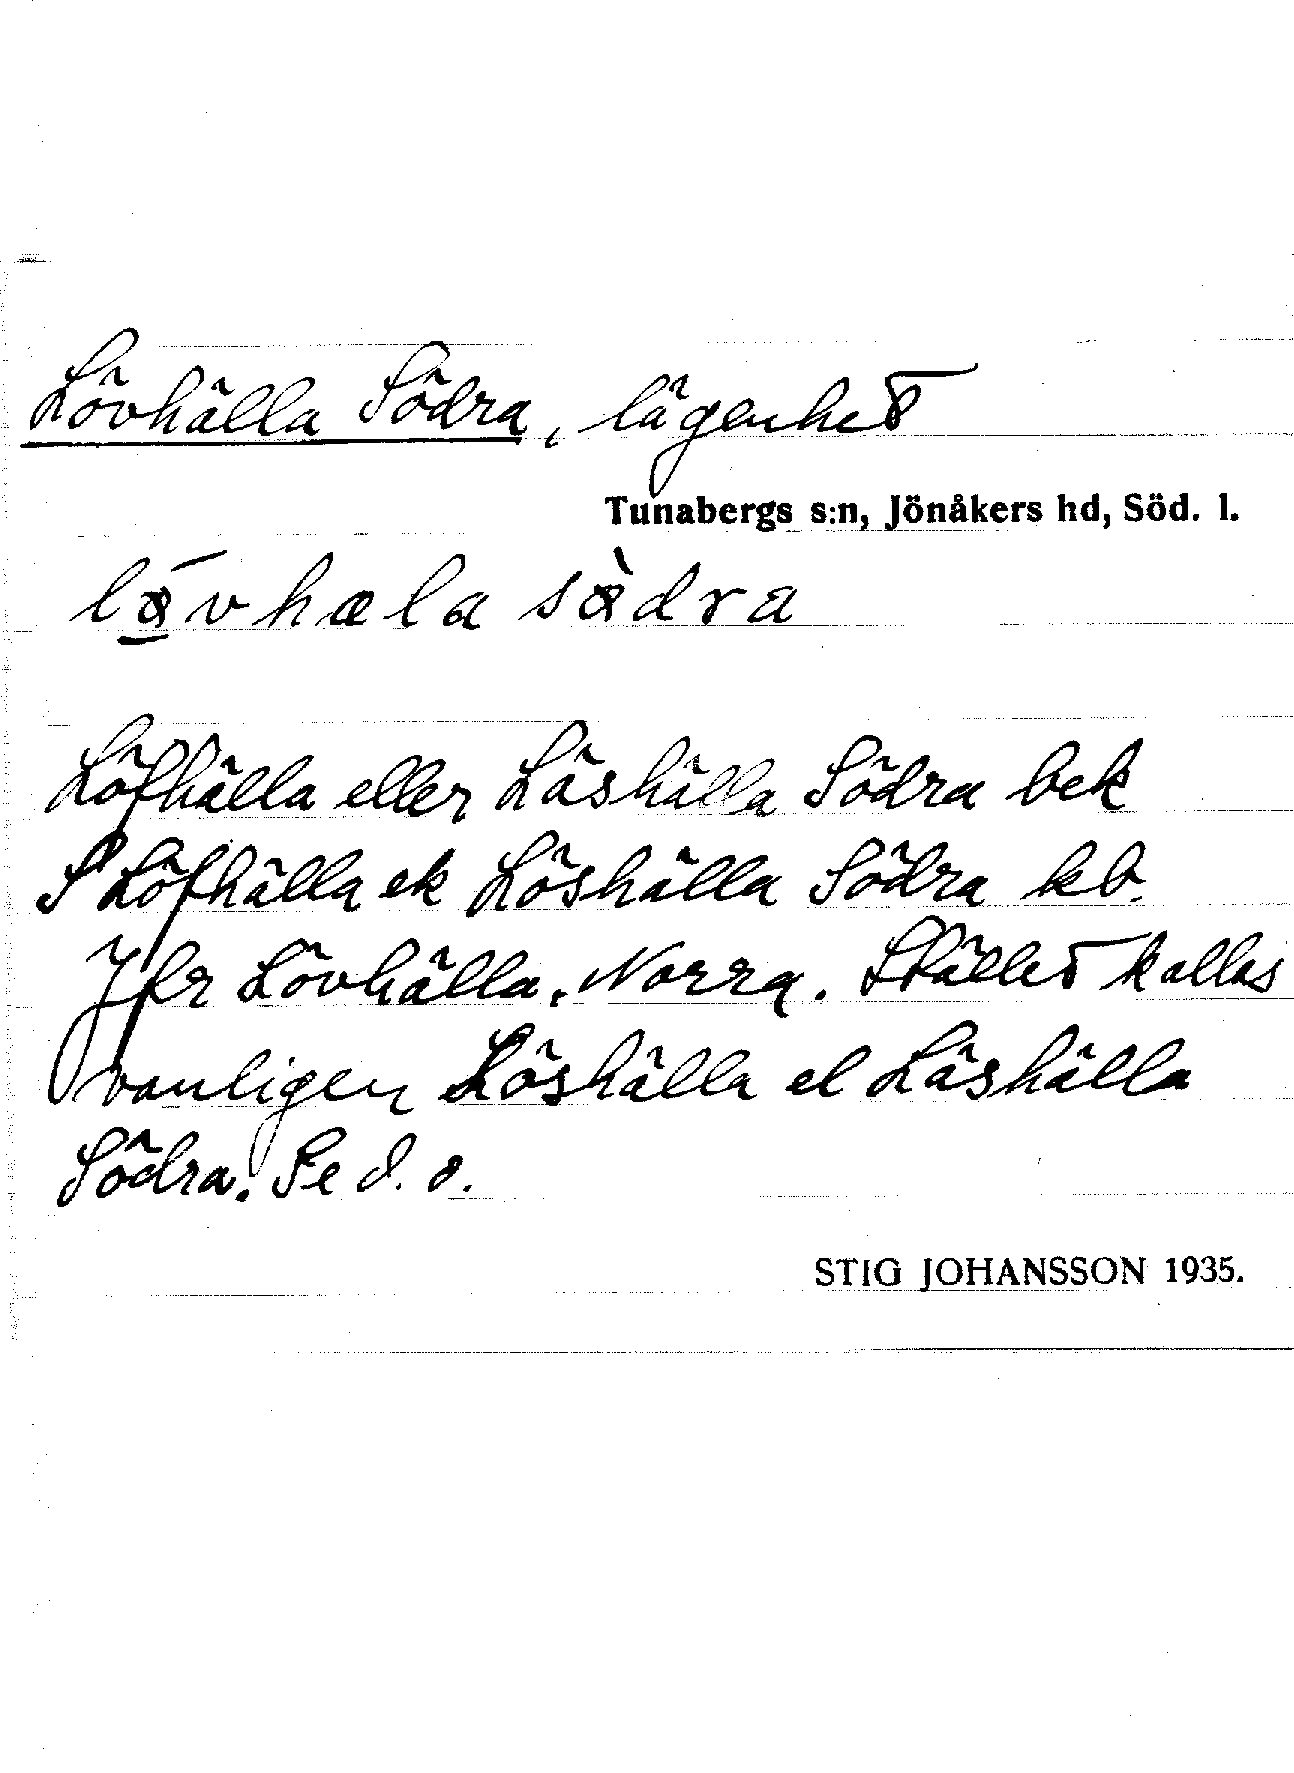 Lövhälla Södra, lägenhet
Tunabergs s:n, Jönåkers hd, Söd. l.
Löfhälla eller Läshälla Södra bek
S Löfhälla ek Löshälla Södra kb.
Jfr Lövhälla, Norra. Stället kallas
vanligen Löshälla el Läshälla
Södra. Se d. o.
STIG JOHANSSON 1935.